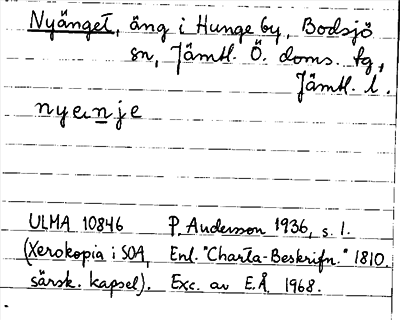 Nyänget, äng i Hunge by, Bodsjö
sn, Jämtl. Ö. doms. tg,
Jämtl. l.
nyenje
ULMA 10846 P. Andersson 1936, s. 1.
(Xerokopia i SOA, Enl. "Charta-Beskrifn." 1810.
särsk. kapsel). Exc. av E.Å. 1968.